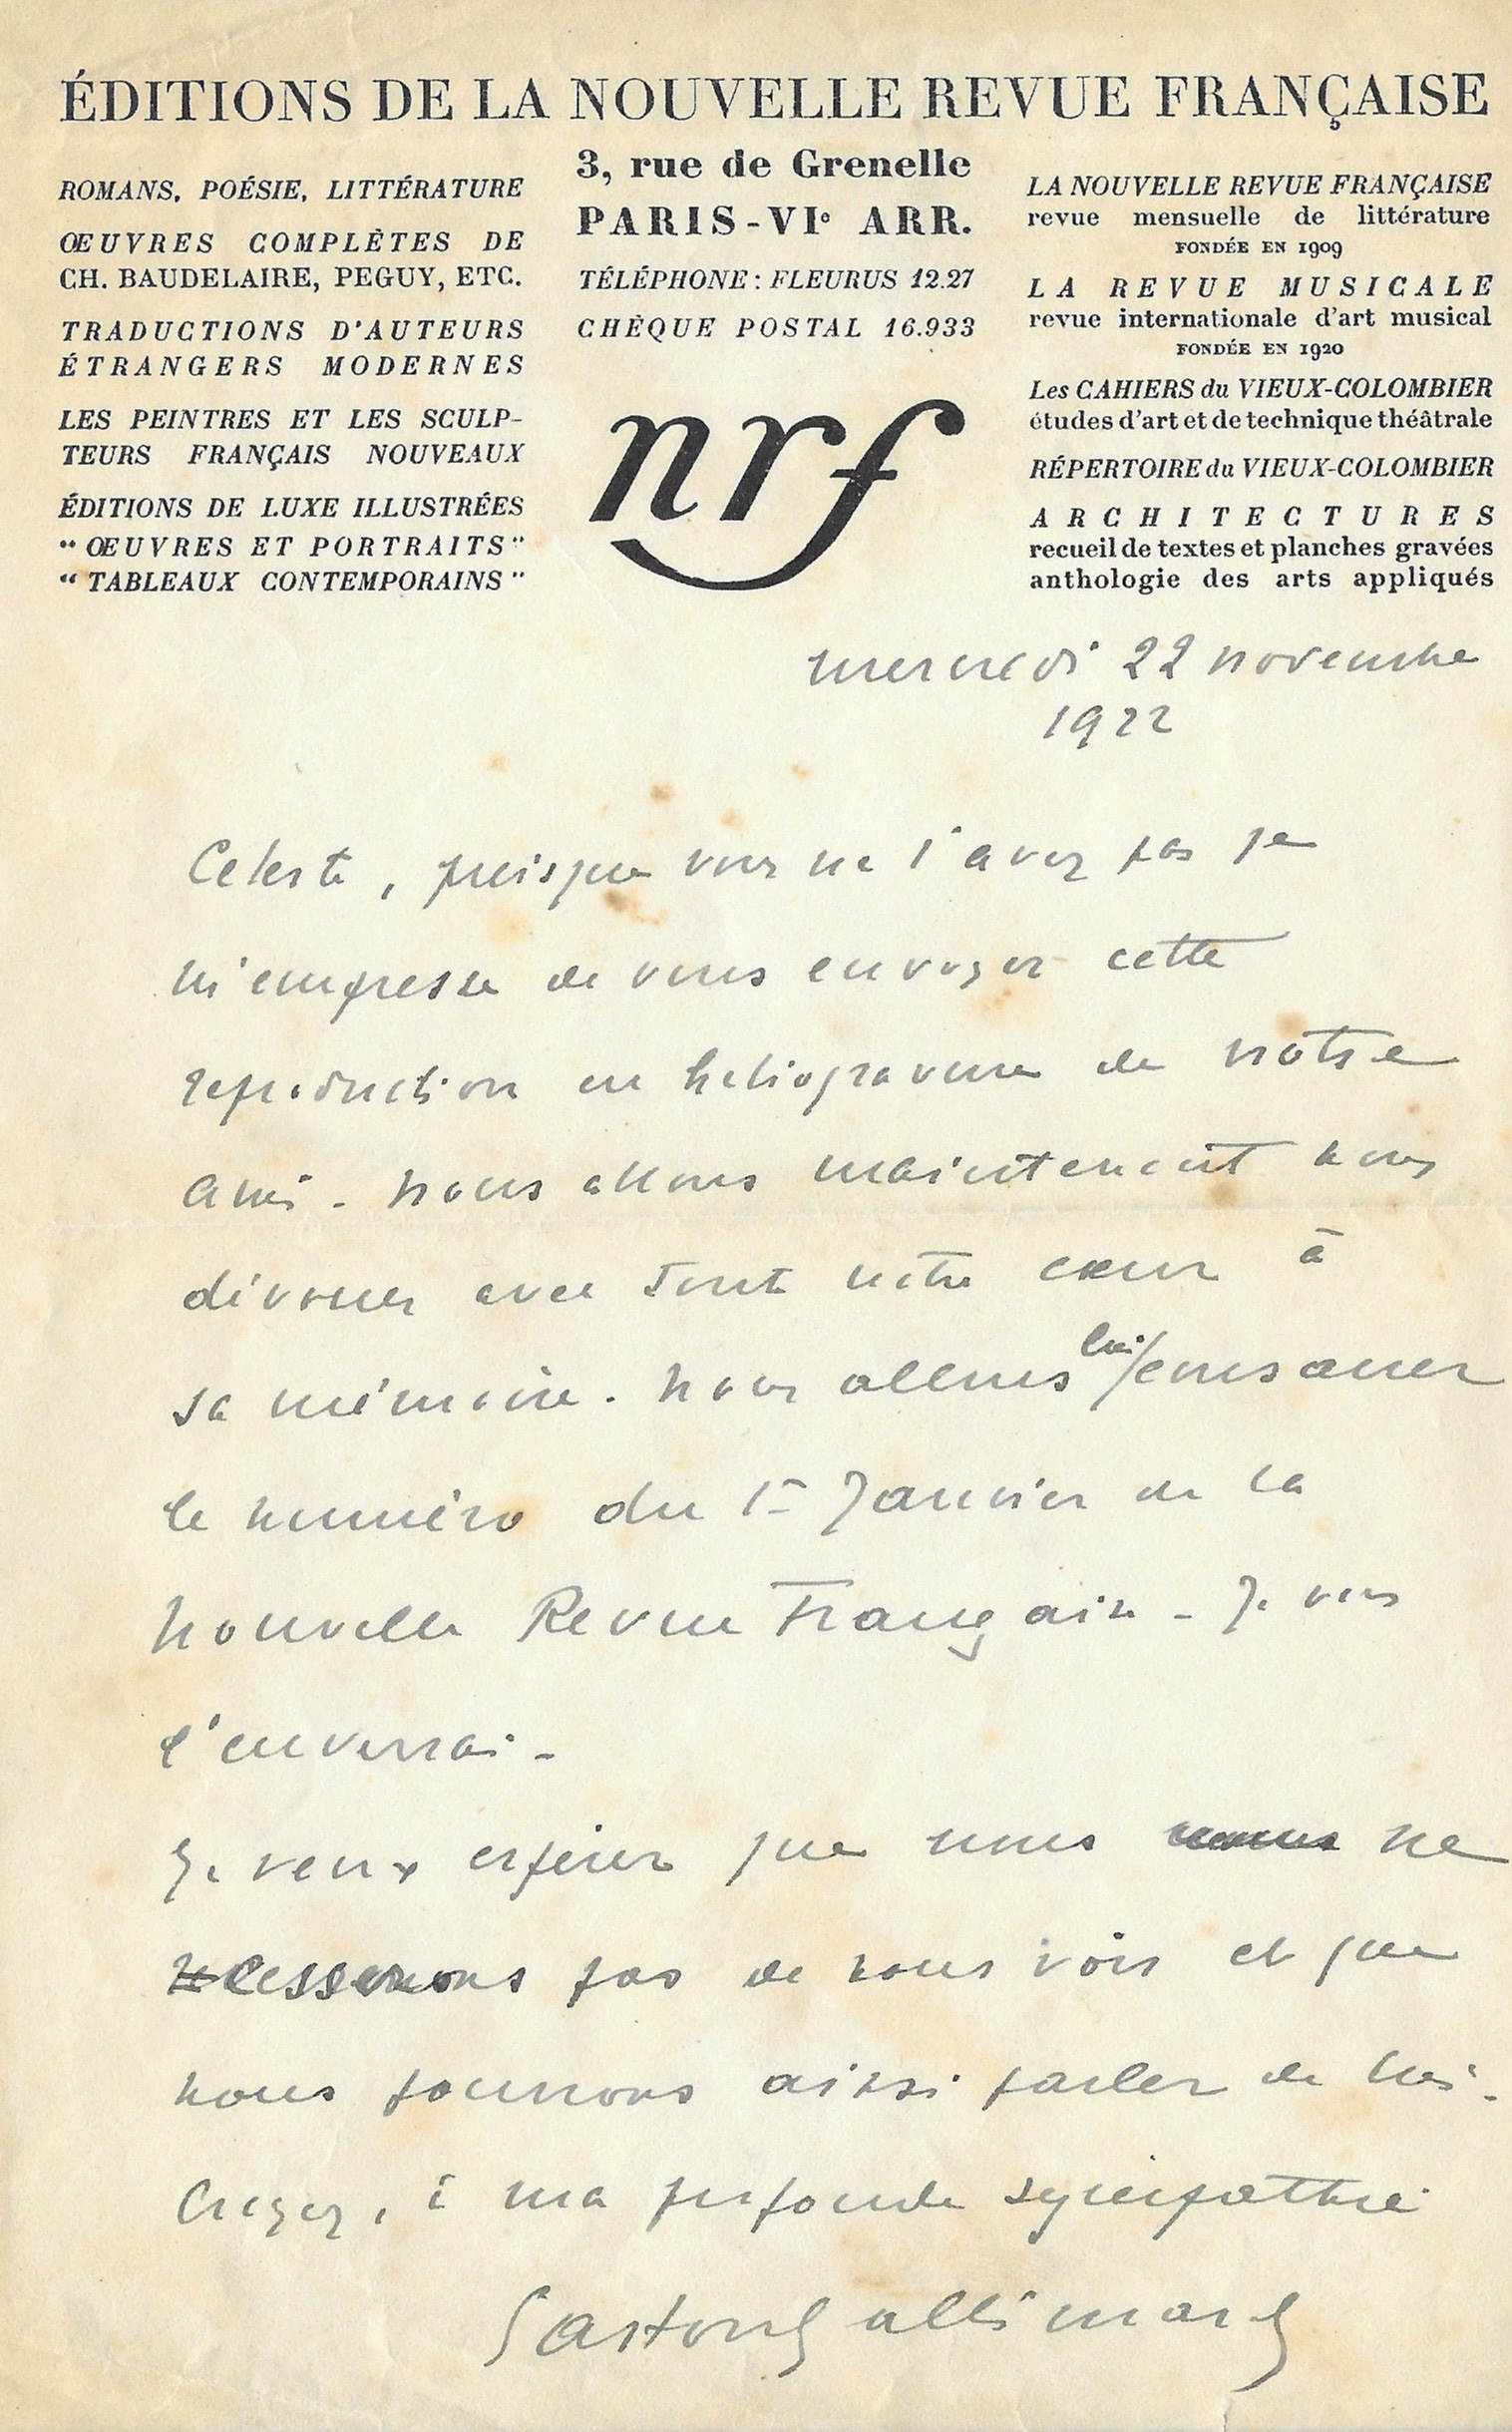 ÉDITIONS DE LA NOUVELLE REVUE FRANÇAISE
ROMANS, POÉSIE, LITTÉRATURE
ŒUVRES COMPLÈTES DE
CH. BAUDELAIRE, PEGUY, ETC.
TRADUCTIONS D'AUTEURS
ÉTRANGERS MODERNES
LES PEINTRES ET LES SCULP-
TEURS FRANÇAIS NOUVEAUX
ÉDITIONS DE LUXE ILLUSTRÉES
“ ŒUVRES ET PORTRAITS ”
“ TABLEAUX CONTEMPORAINS ”
3, rue de Grenelle
PARIS-VIe ARR.
TÉLÉPHONE : FLEURUS 12.27
CHÈQUE POSTAL 16.933
nrf
LA NOUVELLE REVUE FRANÇAISE
revue mensuelle de littérature
FONDÉE EN 1909
LA REVUE MUSICALE
revue internationale d'art musical
FONDÉE EN 1920
Les CAHIERS du VIEUX-COLOMBIER
études d'art et de technique théâtrale
RÉPERTOIRE du VIEUX-COLOMBIER
ARCHITECTURES
recueil de textes et planches gravées
anthologie des arts appliqués
mercredi 22 novembre
1922
Celeste, puisque vous ne l'avez pas je
m'empresse de vous envoyer cette
reproduction en heliogravure de notre
ami - Nous allons maintenant nous
dévouer avec tout notre cœur à
sa mémoire. Nous allons lui consacrer
le numéro du 1er Janvier de la
Nouvelle Revue Française - Je vous
l'enverrai -
Je veux espérer que nous ne
cesserons pas de nous voir et que
nous pourrons ainsi parler de lui -
Croyez, à ma profonde sympathie
Gaston Gallimard